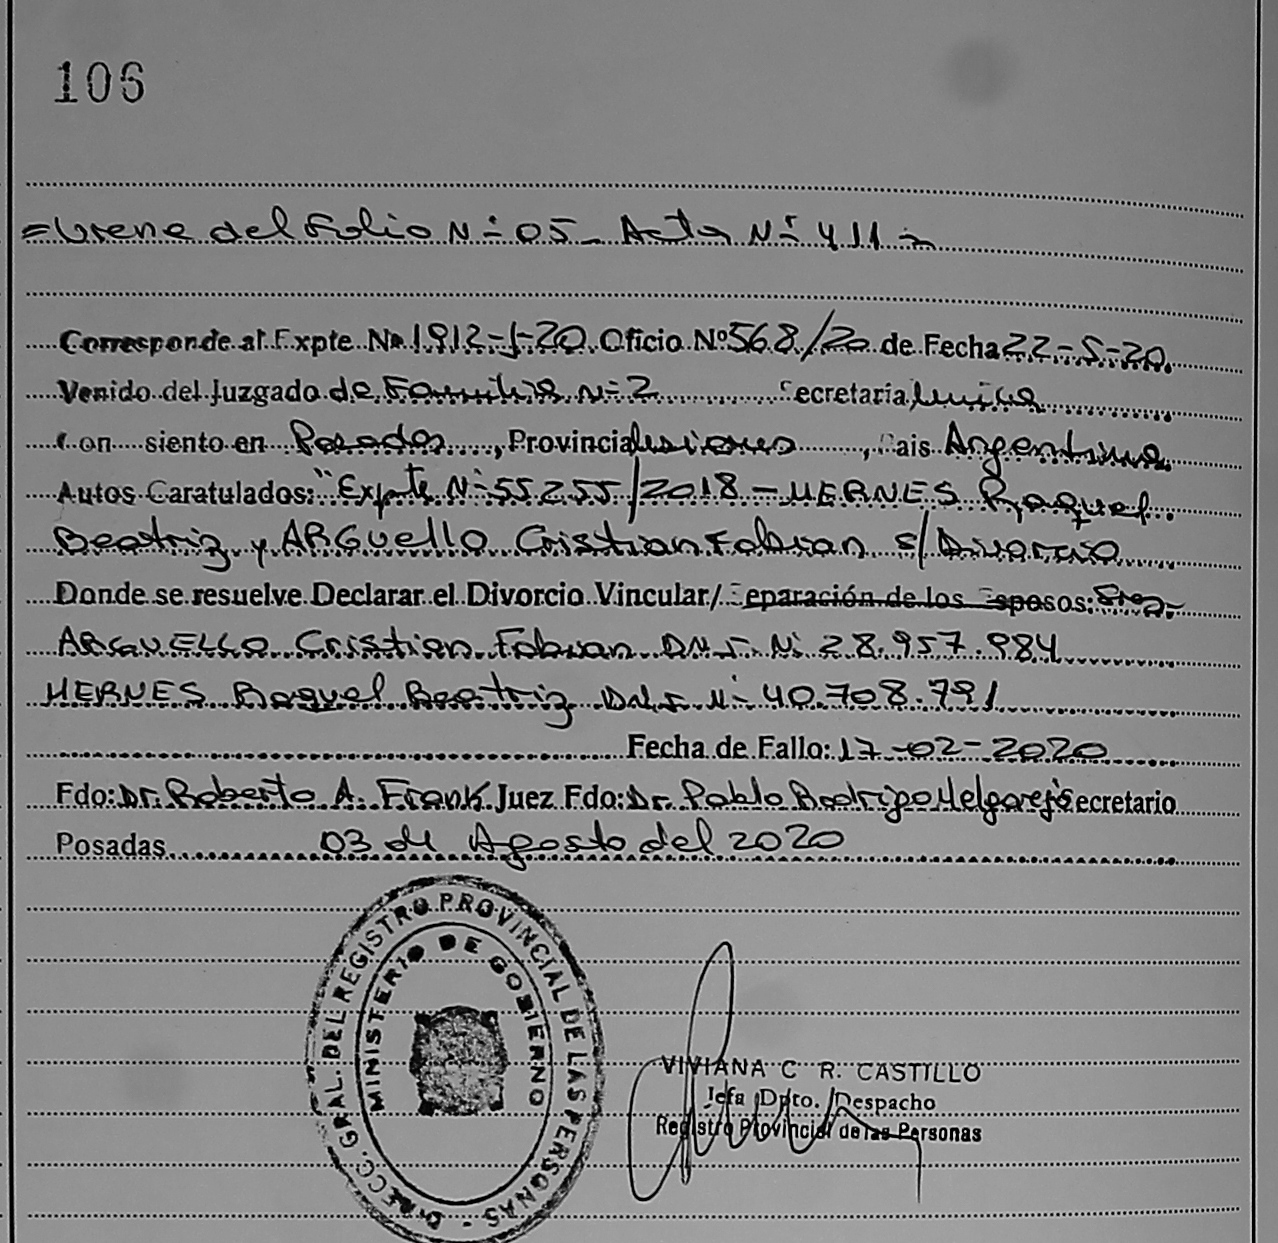 106
= Viene del Folio Nº 05 - Acta Nº 411 =
Corresponde al Expte Nº 1912-J-20 Oficio Nº 568/20 de Fecha 22-5-20
Venido del Juzgado de Familia Nº 2 Secretaría única
Con siento en Posadas, Provincia Misiones, Pais Argentina
Autos Caratulados: "Expte Nº 55255/2018 - HERNES Raquel
Beatriz y ARGUELLO Cristian Fabian s/ Divorcio
Donde se resuelve Declarar el Divorcio Vincular/ Separación de los Esposos: Sres.
ARGUELLO Cristian Fabian D.N.I. Nº 28.957.984
HERNES Raquel Beatriz D.N.I. Nº 40.708.791
Fecha de Fallo: 17-02-2020
Fdo: Dr. Roberto A. Frank Juez Fdo: Dr. Pablo Rodrigo Melgarejo Secretario
Posadas 03 de Agosto del 2020
DIRECC. GRAL. DEL REGISTRO PROVINCIAL DE LAS PERSONAS -
MINISTERIO DE GOBIERNO
VIVIANA C. R. CASTILLO
Jefa Dpto. Despacho
Registro Provincial de las Personas